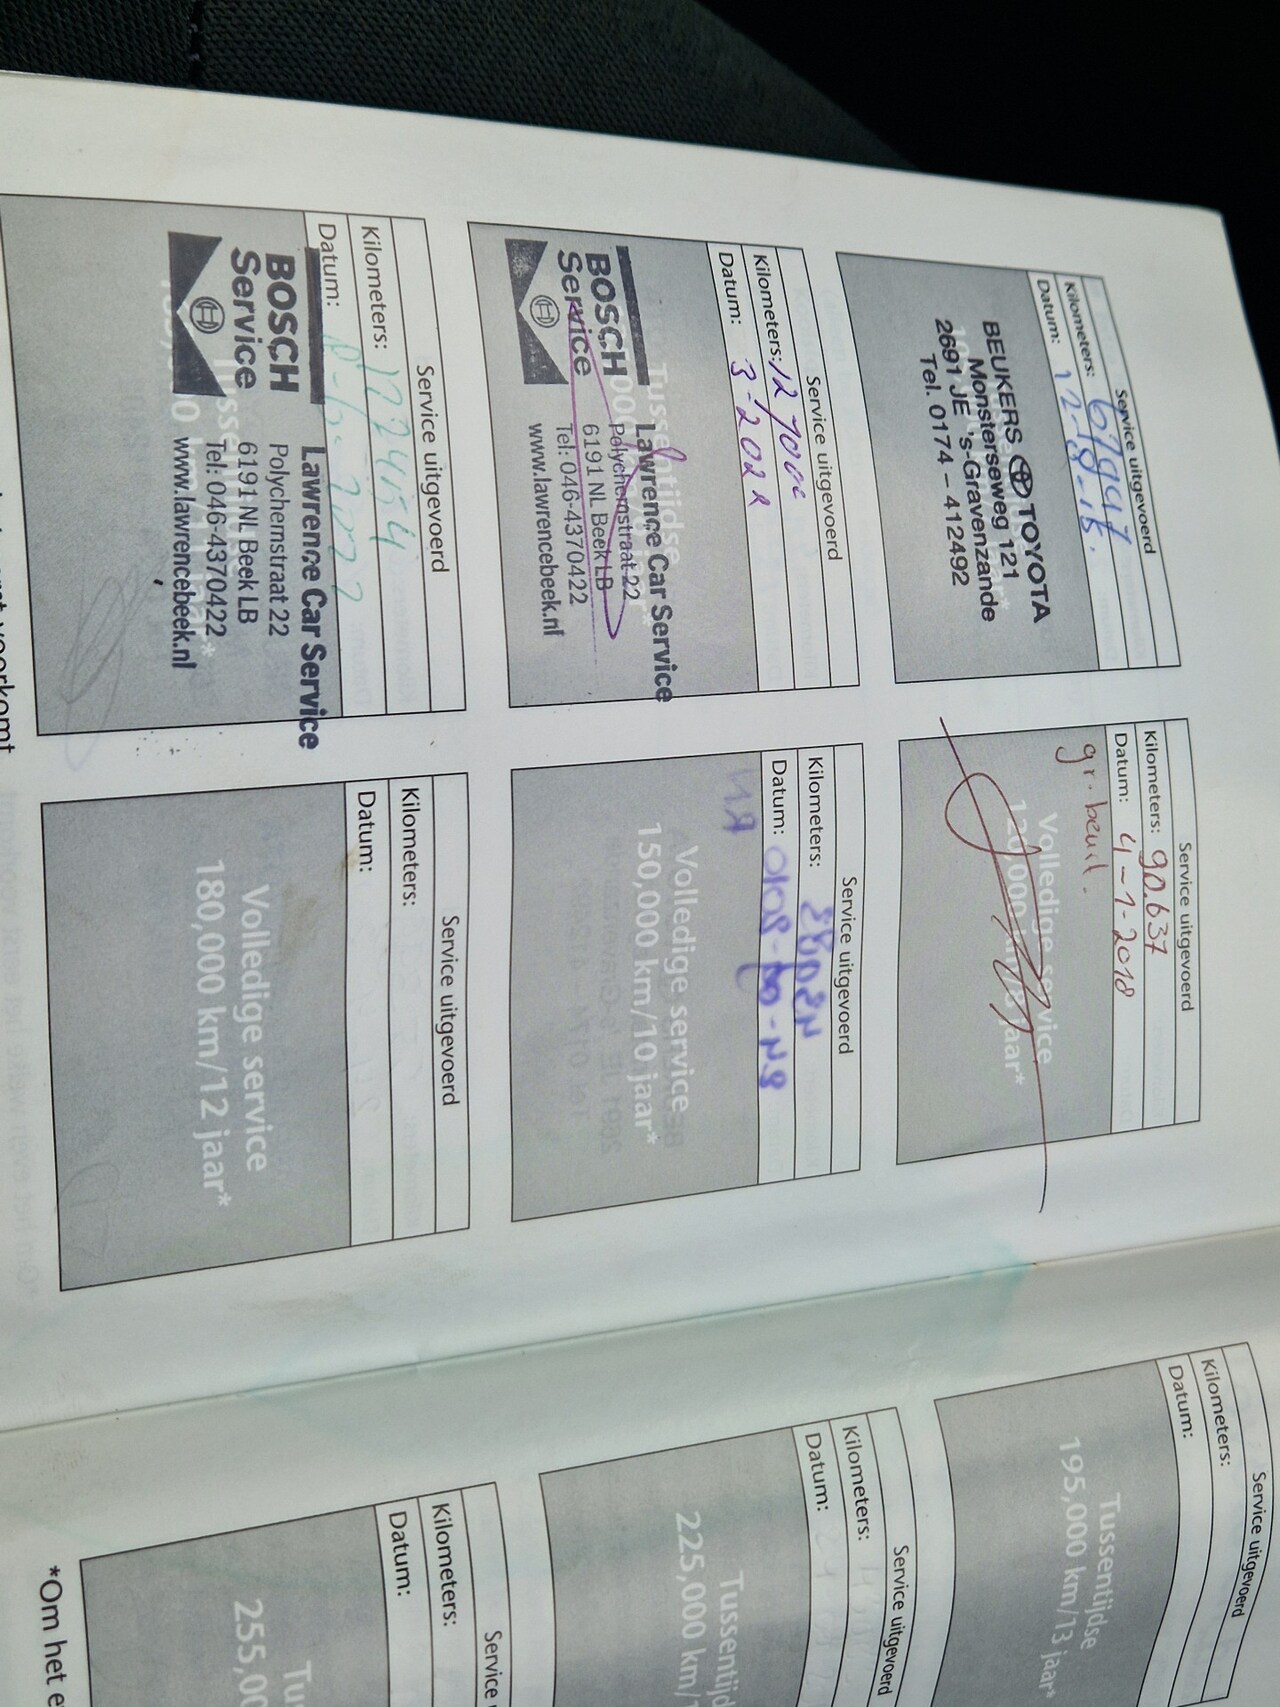 Service uitgevoerd
Kilometers: 67947
Datum: 12-8-15.
BEUKERS TOYOTA
Monsterseweg 121
2691 JE 's-Gravenzande
Tel. 0174 - 412492
Service uitgevoerd
Kilometers: 90.637
Datum: 4-1-2018
gr. beurt.
Volledige service
120,000 km/8 jaar*
Service uitgevoerd
Kilometers: 127000
Datum: 3-2021
Tussentijdse
BOSCH
Service
Lawrence Car Service
Polychemstraat 22
6191 NL Beek LB
Tel: 046-4370422
www.lawrencebeek.nl
Service uitgevoerd
Kilometers:
Datum:
Volledige service
150,000 km/10 jaar*
Service uitgevoerd
Kilometers: 172454
Datum: 8-6-2022
BOSCH
Service
Lawrence Car Service
Polychemstraat 22
6191 NL Beek LB
Tel: 046-4370422
www.lawrencebeek.nl
Service uitgevoerd
Kilometers:
Datum:
Volledige service
180,000 km/12 jaar*
voorkomt
Service uitgevoerd
Kilometers:
Datum:
Tussentijdse
195,000 km/13 jaar*
Service uitgevoerd
Kilometers:
Datum:
Tussentijd
225,000 km/1
Service
Kilometers:
Datum:
Tu
255,00
*Om het e